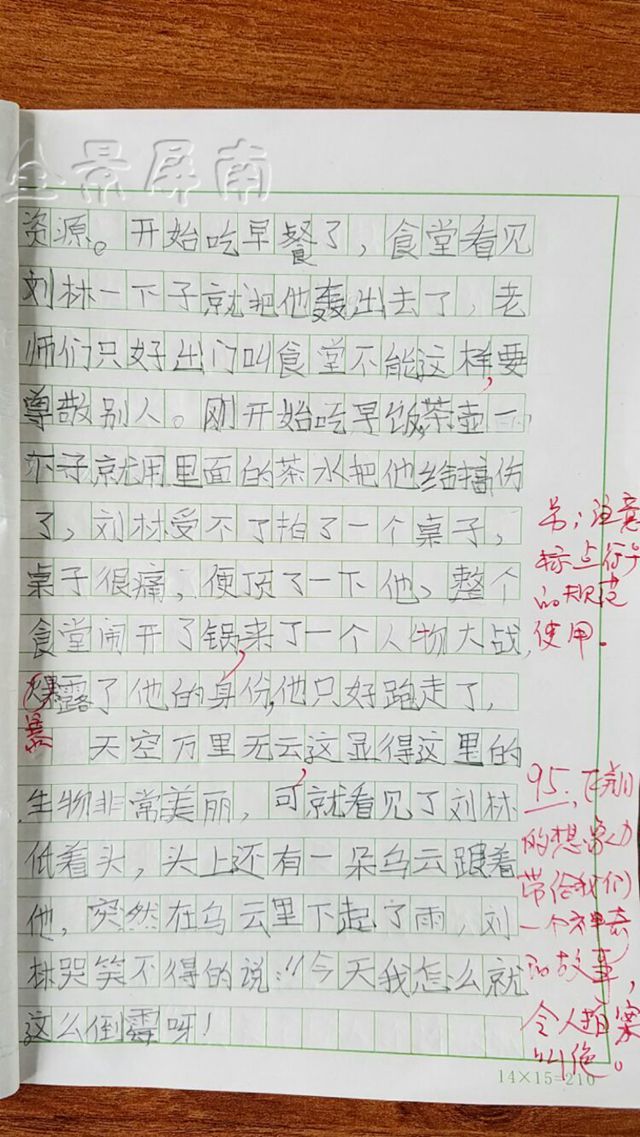 全景屏南
资源。开始吃早餐了，食堂看见
刘林一下子就把他轰出去了，老
师们只好出门叫食堂不能这样，要
尊敬别人。刚开始吃早饭，茶壶一
下子就用里面的茶水把他给搞伤
了，刘林受不了拍了一个桌子，
桌子很痛，便顶了一下他，整个
食堂闹开了锅来了一个人物大战，
爆露了他的身份，他只好跑走了，
暴
天空万里无云，这显得这里的
生物非常美丽，可就看见了刘林
低着头，头上还有一朵乌云跟着
他，突然在乌云里下起了雨，刘
林哭笑不得的说：“今天我怎么就
这么倒霉呀！
注意
标点符号
的规范
使用。
95，飞翔
的想象力
带给我们
一个神奇
的故事，
令人拍案
叫绝。
14×15=210